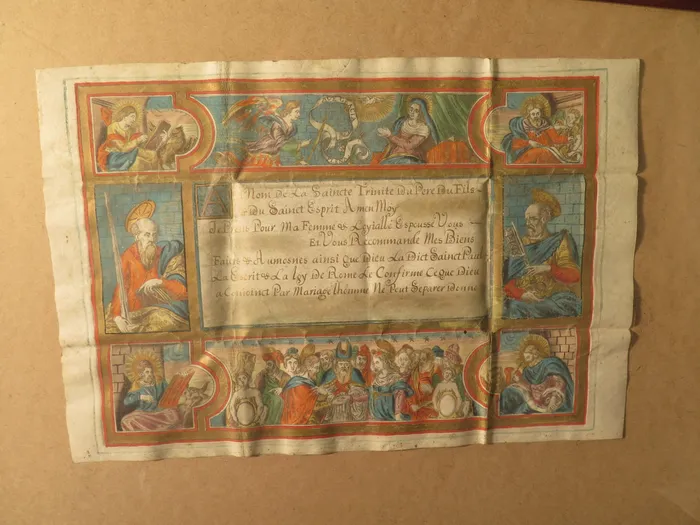 Au Nom de La Saincte Trinite du Pere du Fils
du Sainct Esprit Amen Moy
Pour Ma Femme & Loyalle Espouse Vous
Et Vous Recommande Mes Biens
Faits & Aumosnes ainsi que Dieu La Dict Sainct Paul
La Escrit & La Loy de Rome Le Confirme Ce que Dieu
a Conioinct Par Mariage Lhomme Ne Peut Separer